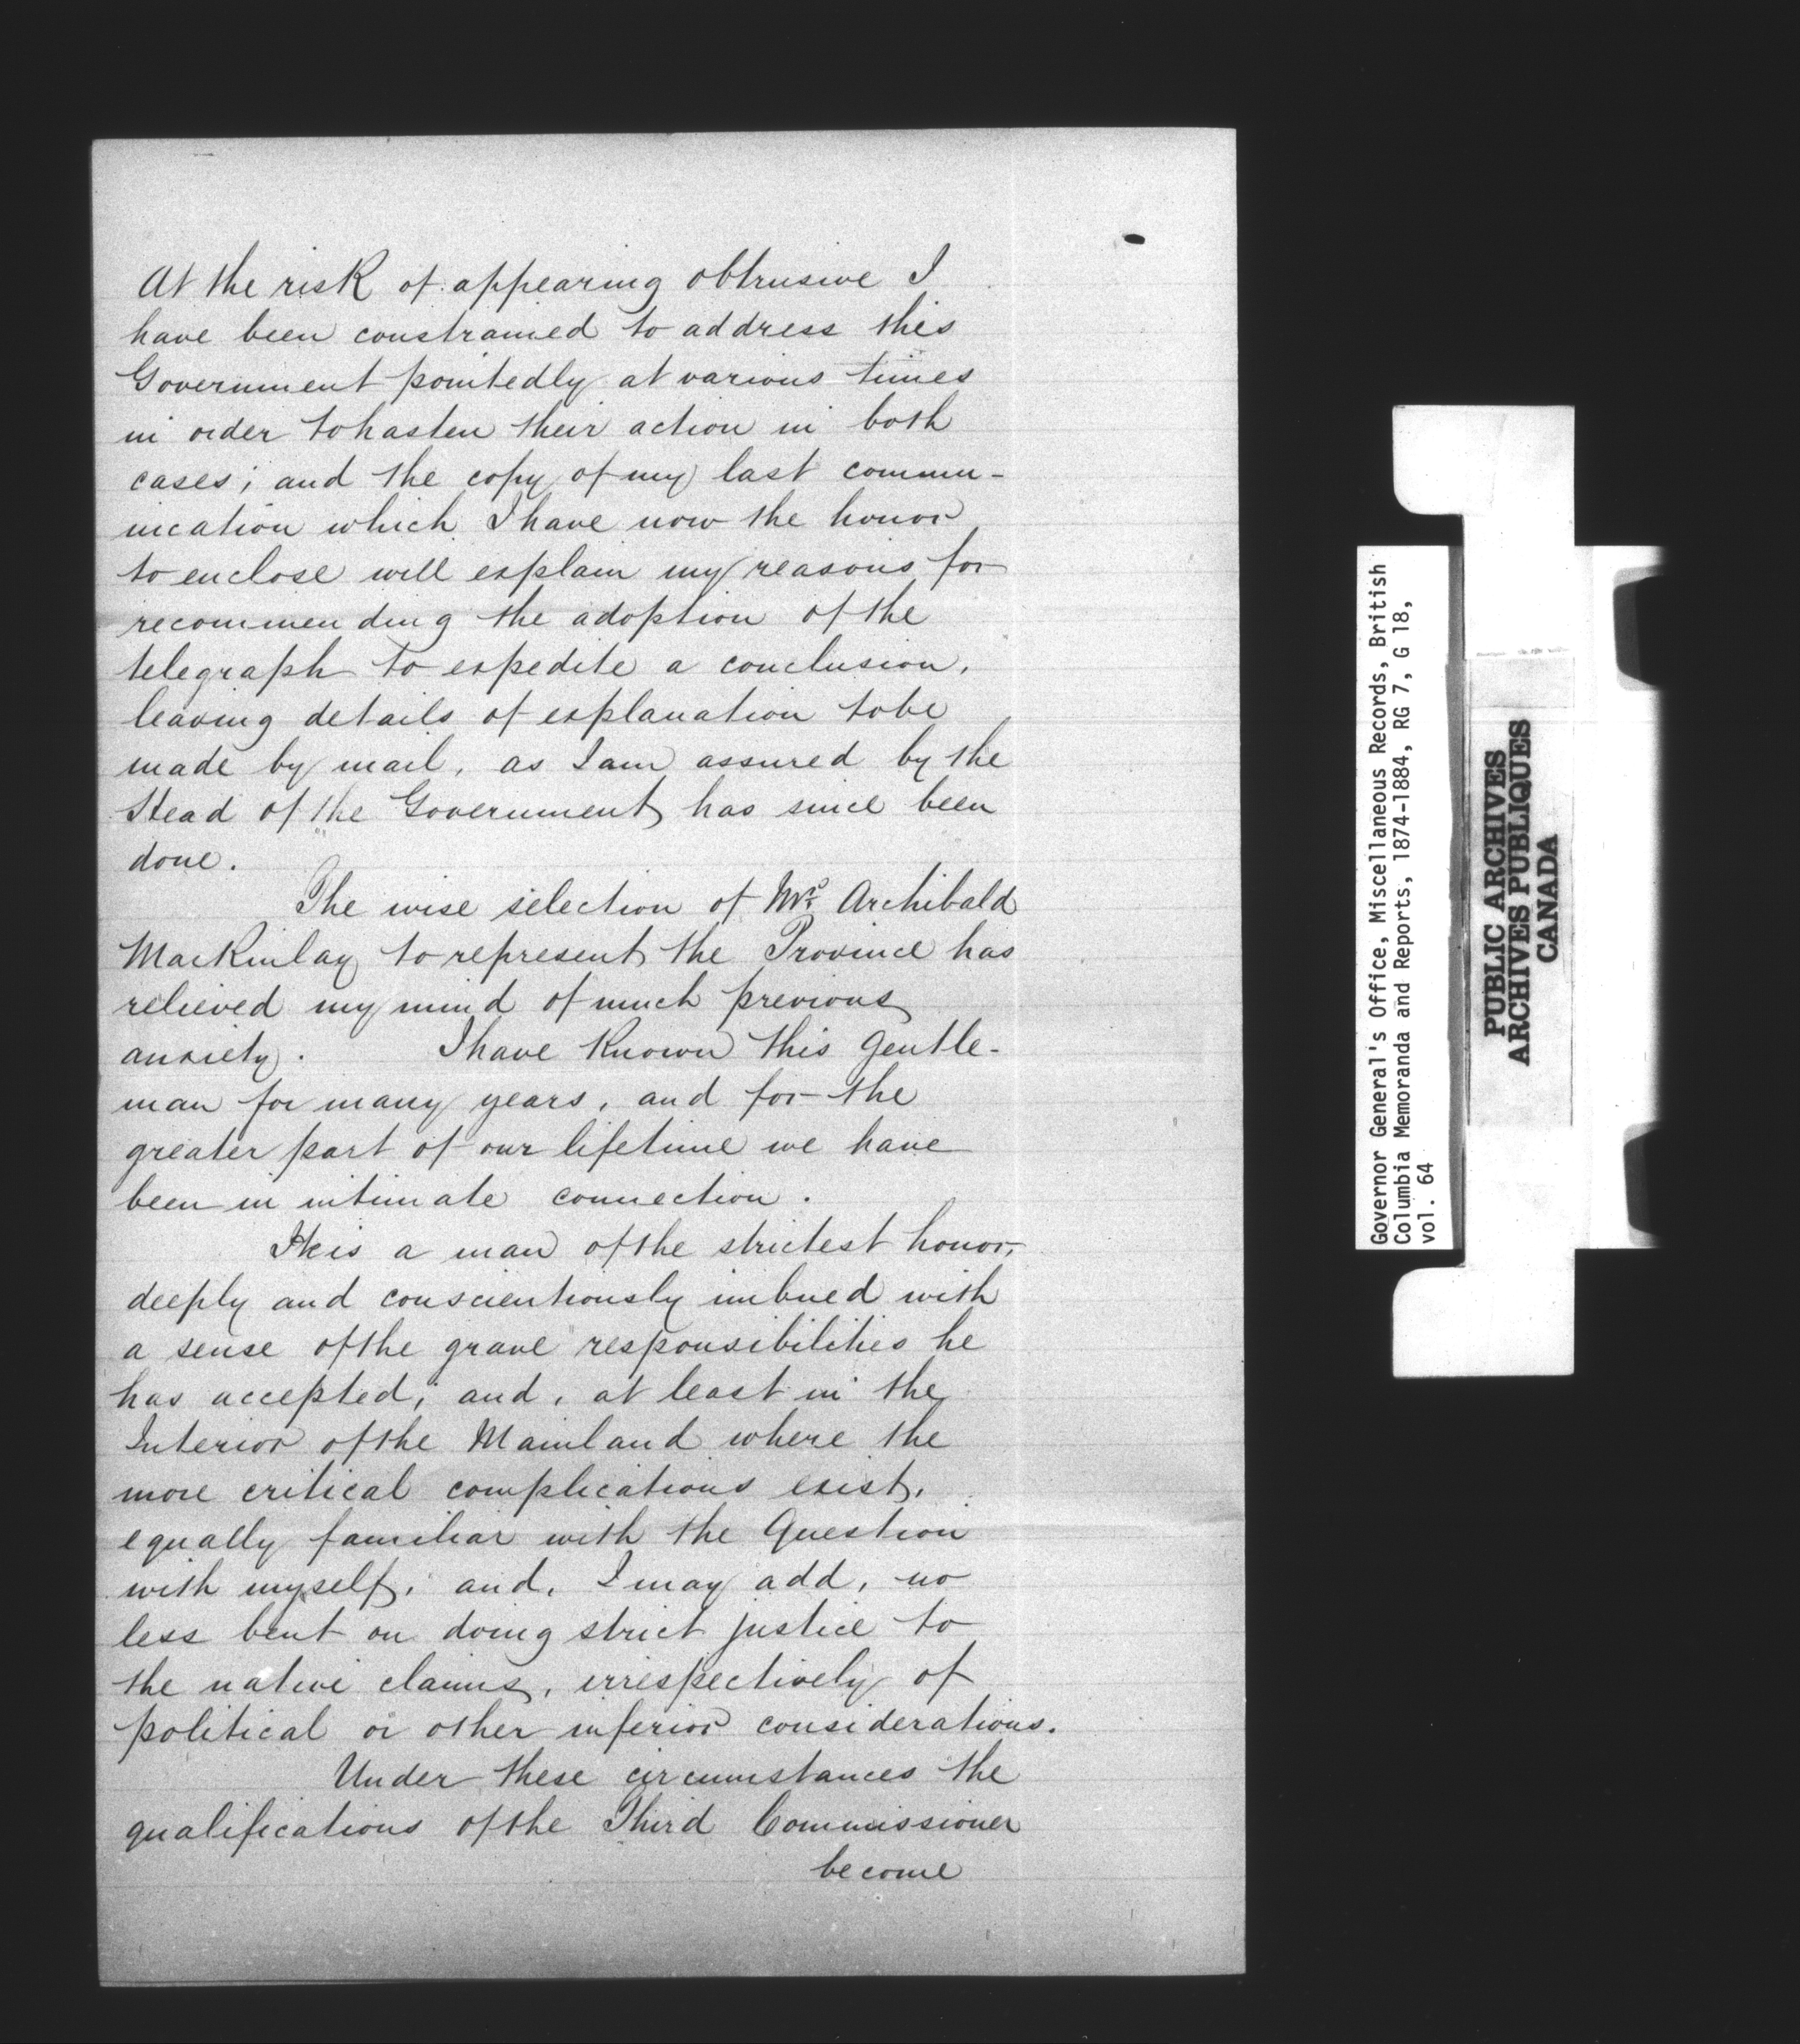 At the risk of appearing obtrusive I
have been constrained to address this
Government pointedly at various times
in order to hasten their action in both
cases; and the copy of my last commu-
nication which I have now the honor
to enclose will explain my reasons for
recommending the adoption of the
telegraph to expedite a conclusion,
leaving details of explanation to be
made by mail, as I am assured by the
Head of the Government has since been
done.
The wise selection of Mr. Archibald
MacKinlay to represent the Province has
relieved my mind of much previous
anxiety. I have Known this gentle-
man for many years, and for the
greater part of our lifetime we have
been in intimate connection.
He is a man of the strictest honor,
deeply and conscientiously imbued with
a sense of the grave responsibilities he
has accepted; and, at least in the
Interior of the Mainland where the
more critical complications exist,
equally familiar with the Question
with myself; and, I may add, no
less bent on doing strict justice to
the native claims, irrespectively of
political or other inferior considerations.
Under these circumstances the
qualifications of the Third Commissioner
become
Governor General's Office, Miscellaneous Records, British
Columbia Memoranda and Reports, 1874-1884, RG 7, G 18,
vol. 64
PUBLIC ARCHIVES
ARCHIVES PUBLIQUES
CANADA